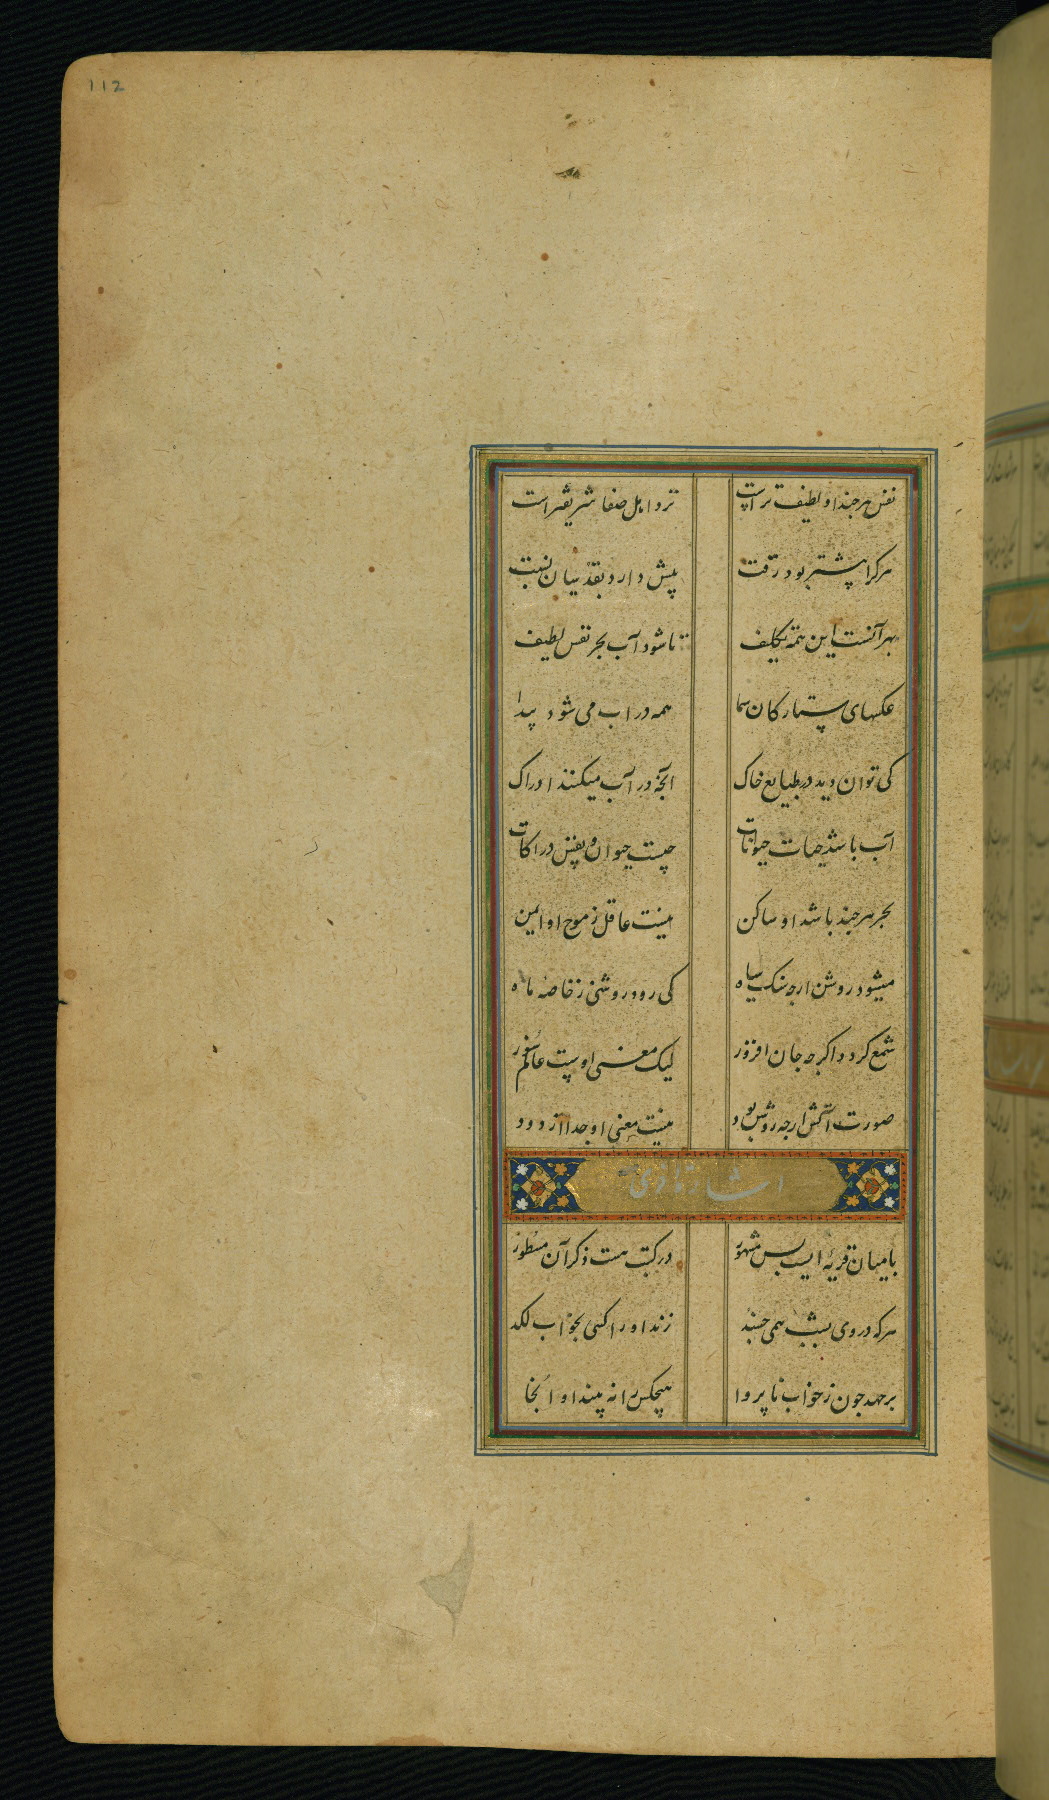 112
نفس هر چند او لطیف تر است نزد اهل صفا شریفتر است
هر کرا پیشتر بود رقت پیش دارد بقدسیان نسبت
بهر آنست این همه تکلیف تا شود آب بحر نفس لطیف
عکسهای ستارکان سما همه در آب می شود پیدا
کی توان دید در طبایع خاک آنچه در آب میکنند ادراک
آب باشد حیات حیوانات چیست حیوان نفس دراکات
بحر هر چند باشد او ساکن نیست عاقل ز موج او ایمن
میشود روشن ارچه سنک سیاه کی رود روشنی ز خاصه ماه
شمع کردد اکرچه جان افروز لیک معنی اوست عالم سوز
صورت آتش ارچه روشن بود نیست معنی او جدا از دود
اشارتا قری
بامیان قریه ایست بس مشهور در کتب هست ذکر آن مسطور
هر که در وی بشب همی خسبد زند او را کسی بخواب لکد
برجهد چون ز خواب ناپروا هیچکس را نه بیند او آنجا